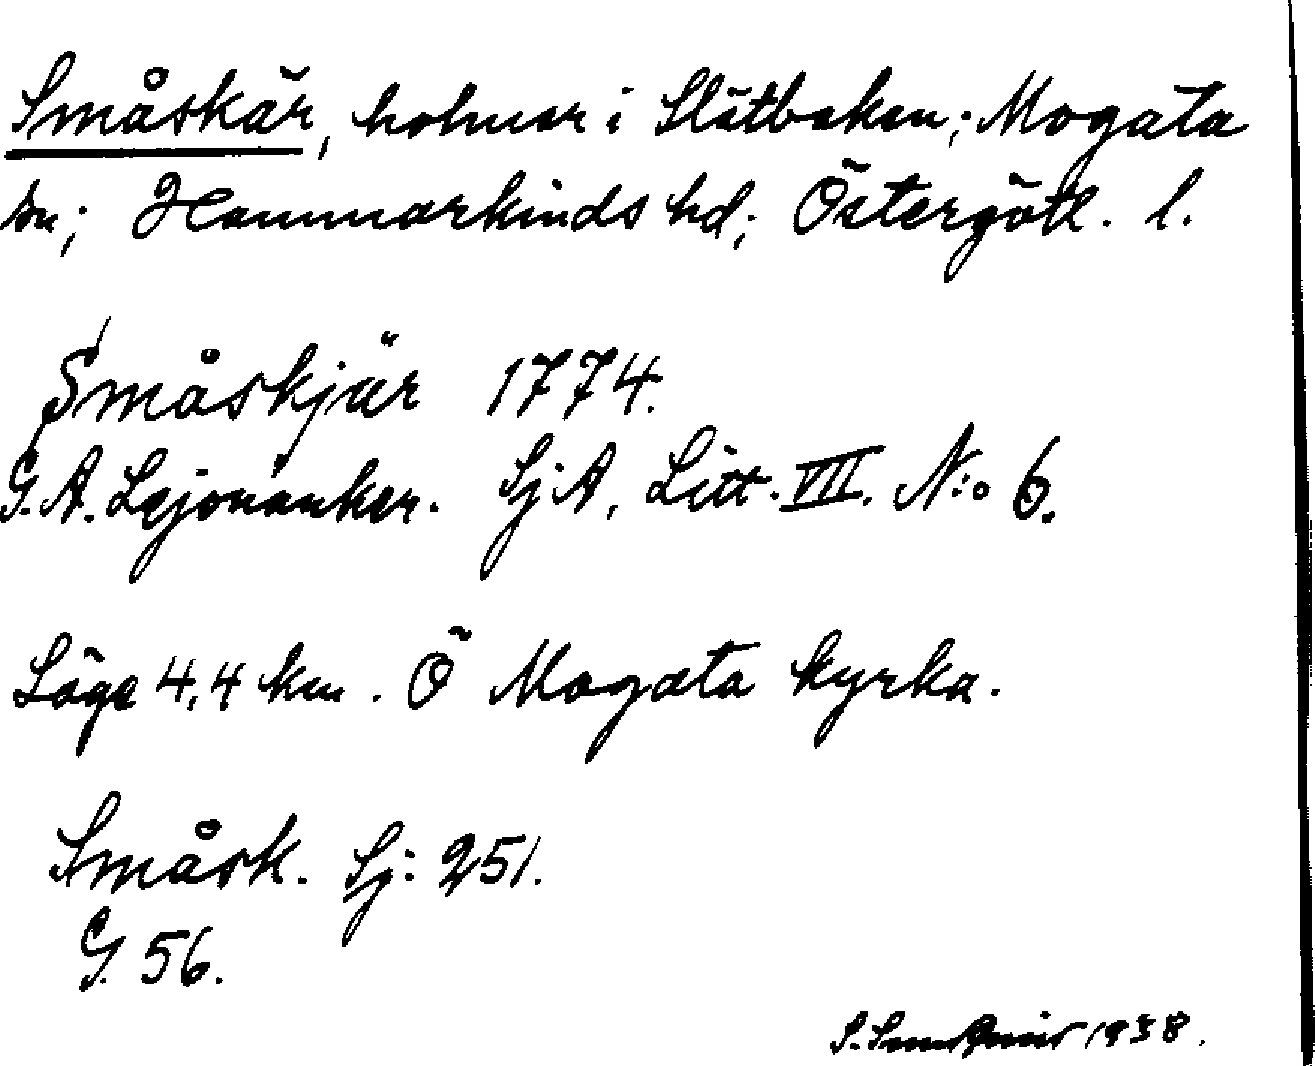 Småskär, holmar i Slätbaken; Mogata
sn; Hammarkinds hd; Östergötl. l.
Småskjär 1774.
G. A. Lejonanker. SjA, Litt. VII. N:o 6.
Läge 4,4 km. Ö Mogata kyrka.
Småsk. Sj: 251.
G. 56.
S. 1938.